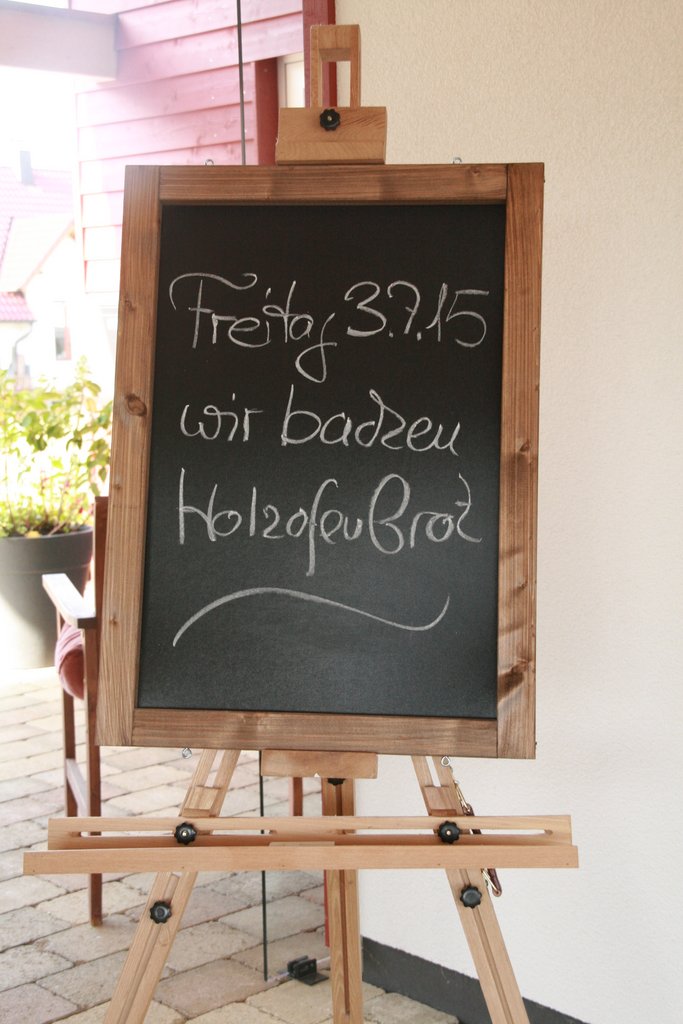 Freitag 3.7.15
wir backen
Holzofenbrot